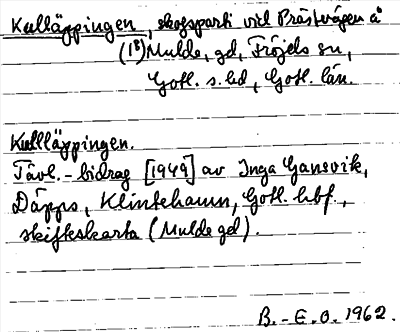 Kulläppingen, skogsparti vid Prästvägen å
(1⁸) Mulde, gd, Fröjels sn,
Gotl. s. hd, Gotl. län.
Kullläppingen.
Tävl.-bidrag [1949] av Inga Gansvik,
Däpps, Klintehamn, Gotl. hbf.,
skifteskarta (Mulde gd).
B.-E. O. 1962.